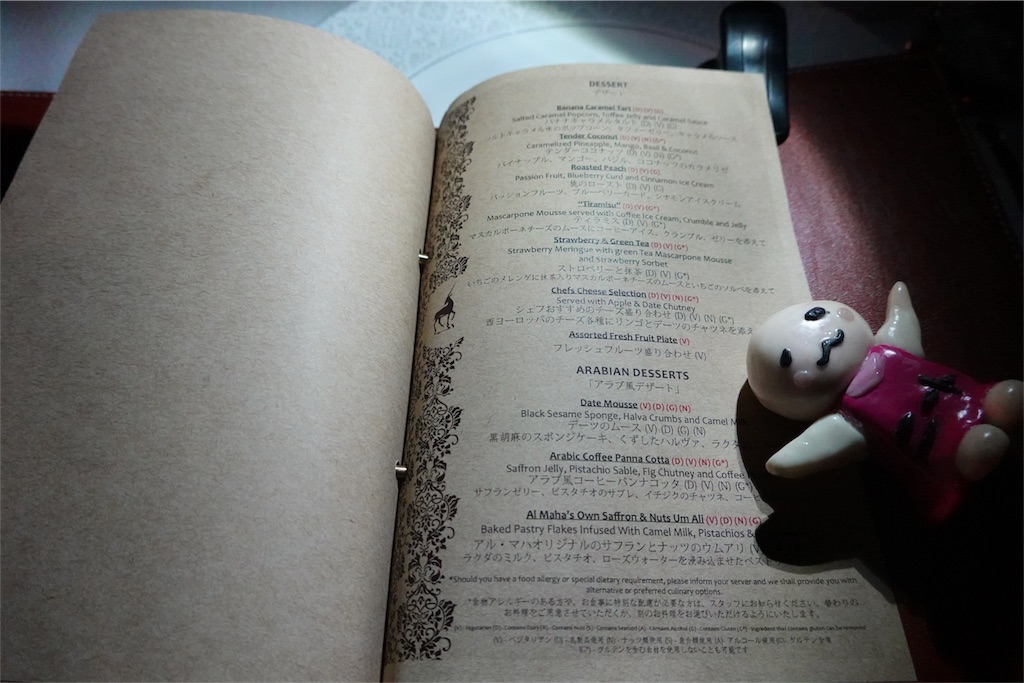 DESSERT
デザート
Banana Caramel Tart (D) (V) (G)
Salted Caramel Popcorn, Toffee Jelly and Caramel Sauce
バナナキャラメルタルト (D) (V) (G)
ソルトキャラメル味のポップコーン、タフィーゼリー、キャラメルソース
Tender Coconut (D) (V) (N) (G*)
Caramelized Pineapple, Mango, Basil & Coconut
テンダーココナッツ (D) (V) (N) (G*)
パイナップル、マンゴー、バジル、ココナッツのカラメリゼ
Roasted Peach (D) (V) (G)
Passion Fruit, Blueberry Curd and Cinnamon Ice Cream
桃のロースト (D) (V) (G)
パッションフルーツ、ブルーベリーカード、シナモンアイスクリーム
"Tiramisu" (D) (V) (G*)
Mascarpone Mousse served with Coffee Ice Cream, Crumble and Jelly
ティラミス (D) (V) (G*)
マスカルポーネチーズのムースにコーヒーアイス、クランブル、ゼリーを添えて
Strawberry & Green Tea (D) (V) (G*)
Strawberry Meringue with green Tea Mascarpone Mousse
and Strawberry Sorbet
ストロベリーと抹茶 (D) (V) (G*)
いちごのメレンゲに抹茶入りマスカルポーネチーズのムースといちごのソルベを添えて
Chefs Cheese Selection (D) (V) (N) (G*)
Served with Apple & Date Chutney
シェフおすすめのチーズ盛り合わせ (D) (V) (N) (G*)
西ヨーロッパのチーズ各種にリンゴとデーツのチャツネを添え
Assorted Fresh Fruit Plate (V)
フレッシュフルーツ盛り合わせ (V)
ARABIAN DESSERTS
「アラブ風デザート」
Date Mousse (V) (D) (G) (N)
Black Sesame Sponge, Halva Crumbs and Camel
デーツのムース (V) (D) (G) (N)
黒胡麻のスポンジケーキ、くずしたハルヴァ、ラク
Arabic Coffee Panna Cotta (D) (V) (N) (G*)
Saffron Jelly, Pistachio Sable, Fig Chutney and Coffee
アラブ風コーヒーパンナコッタ (D) (V) (N) (G*)
サフランゼリー、ピスタチオのサブレ、イチジクのチャツネ、コー
Al Maha's Own Saffron & Nuts Um Ali (V) (D) (N) (G)
Baked Pastry Flakes Infused With Camel Milk, Pistachios &
アル・マハオリジナルのサフランとナッツのウムアリ (V)
ラクダのミルク、ピスタチオ、ローズウォーターを浸み込ませたペスト
*Should you have a food allergy or special dietary requirement, please inform your server and we shall provide you with
alternative or preferred culinary options.
*食物アレルギーのある方や、お食事に特別な配慮が必要な方は、スタッフにお知らせください。替わりの
お料理をご用意させていただくか、別のお料理をお選びいただけるようにいたします。
(V) - Vegetarian (D) - Contains Dairy (N) - Contains Nuts (S) - Contains Seafood (A) - Contains Alcohol (G) - Contains Gluten (G*) - Ingredient that contains gluten can be removed
(V) - ベジタリアン (D) - 乳製品使用 (N) - ナッツ類使用 (S) - 魚介類使用 (A) - アルコール使用 (G) - グルテン含有
(G*) - グルテンを含む食材を使用しないことも可能です